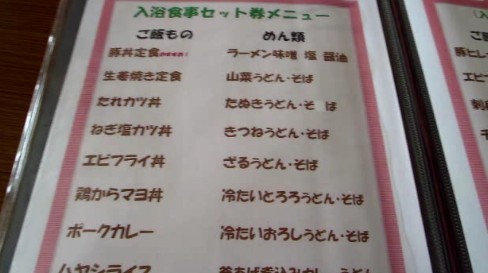 入浴食事セット券メニュー
ご飯もの めん類
豚丼定食 ラーメン味噌 塩 醤油
生姜焼き定食 山菜うどん・そば
たれカツ丼 たぬきうどん・そ ば
ねぎ塩カツ丼 きつねうどん・そば
エビフライ丼 ざるうどん・そば
鶏からマヨ丼 冷たいとろろうどん・そば
ポークカレー 冷たいおろしうどん・そば
ハヤシライス